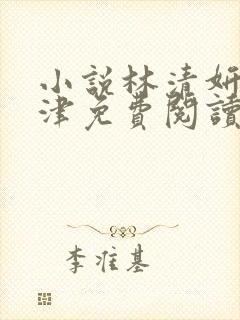 小說林清妍
津免費閱讀
李准基